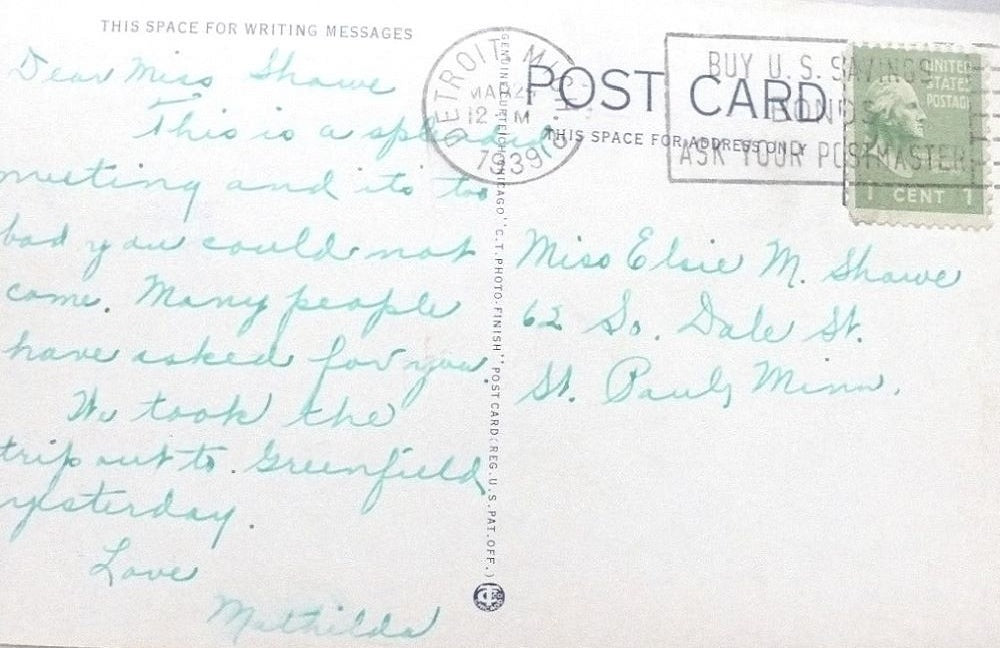 THIS SPACE FOR WRITING MESSAGES
Dear Miss Shawe
This is a splendid
meeting and its too
bad you could not
come. Many people
have asked for you.
We took the
trip out to Greenfield
yesterday.
Love
Mathilda
GENUINE CURTEICH-CHICAGO "C.T. PHOTO-FINISH" POST CARD (REG. U.S. PAT. OFF.)
POST CARD
THIS SPACE FOR ADDRESS ONLY
DETROIT, MICH.
12 M
1939
BUY U.S. SAVINGS
BONDS
ASK YOUR POSTMASTER
UNITED
STATES
POSTAGE
1 CENT 1
Miss Elsie M. Shawe
62 So. Dale St.
St. Paul, Minn.